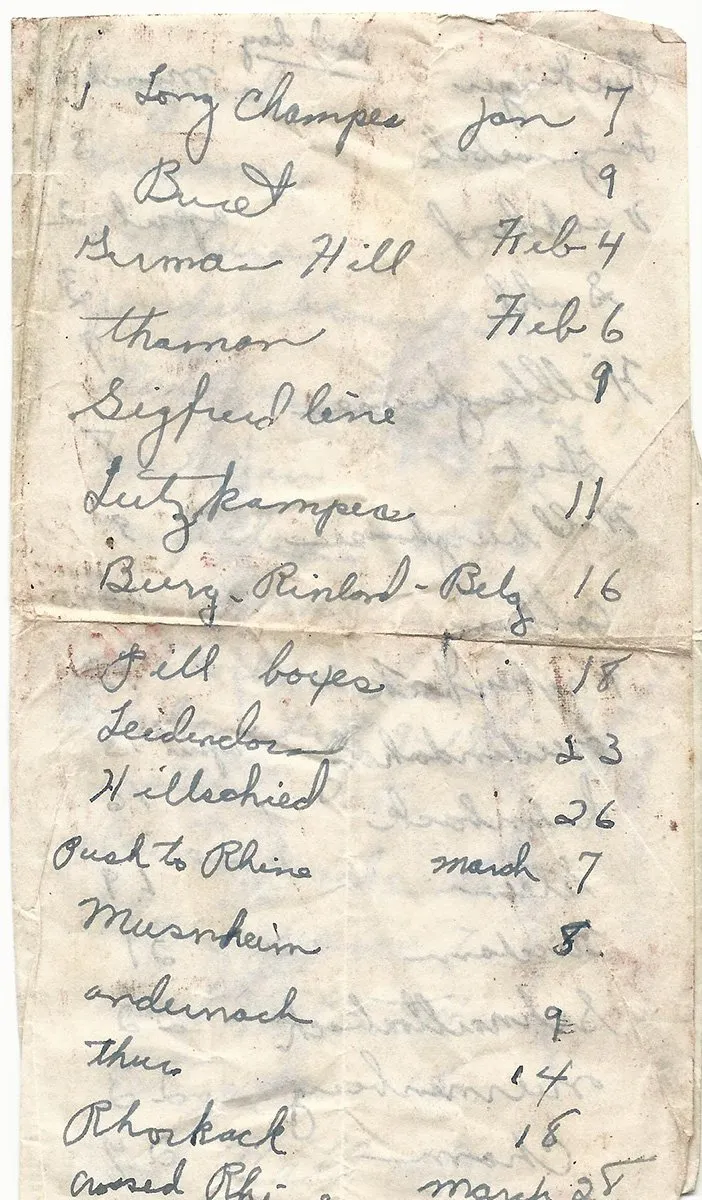 Long Champes Jan 7
Buret 9
German Hill Feb 4
thamon Feb 6
Sigfried line 9
Lutzkampes 11
Burg - Rinlond - Belg 16
Pill boxes 18
Leidendorn 23
Hillschied 26
Push to Rhine march 7
Musnheim 8
andernach 9
thur 14
14
Rhorkack 18
crossed march